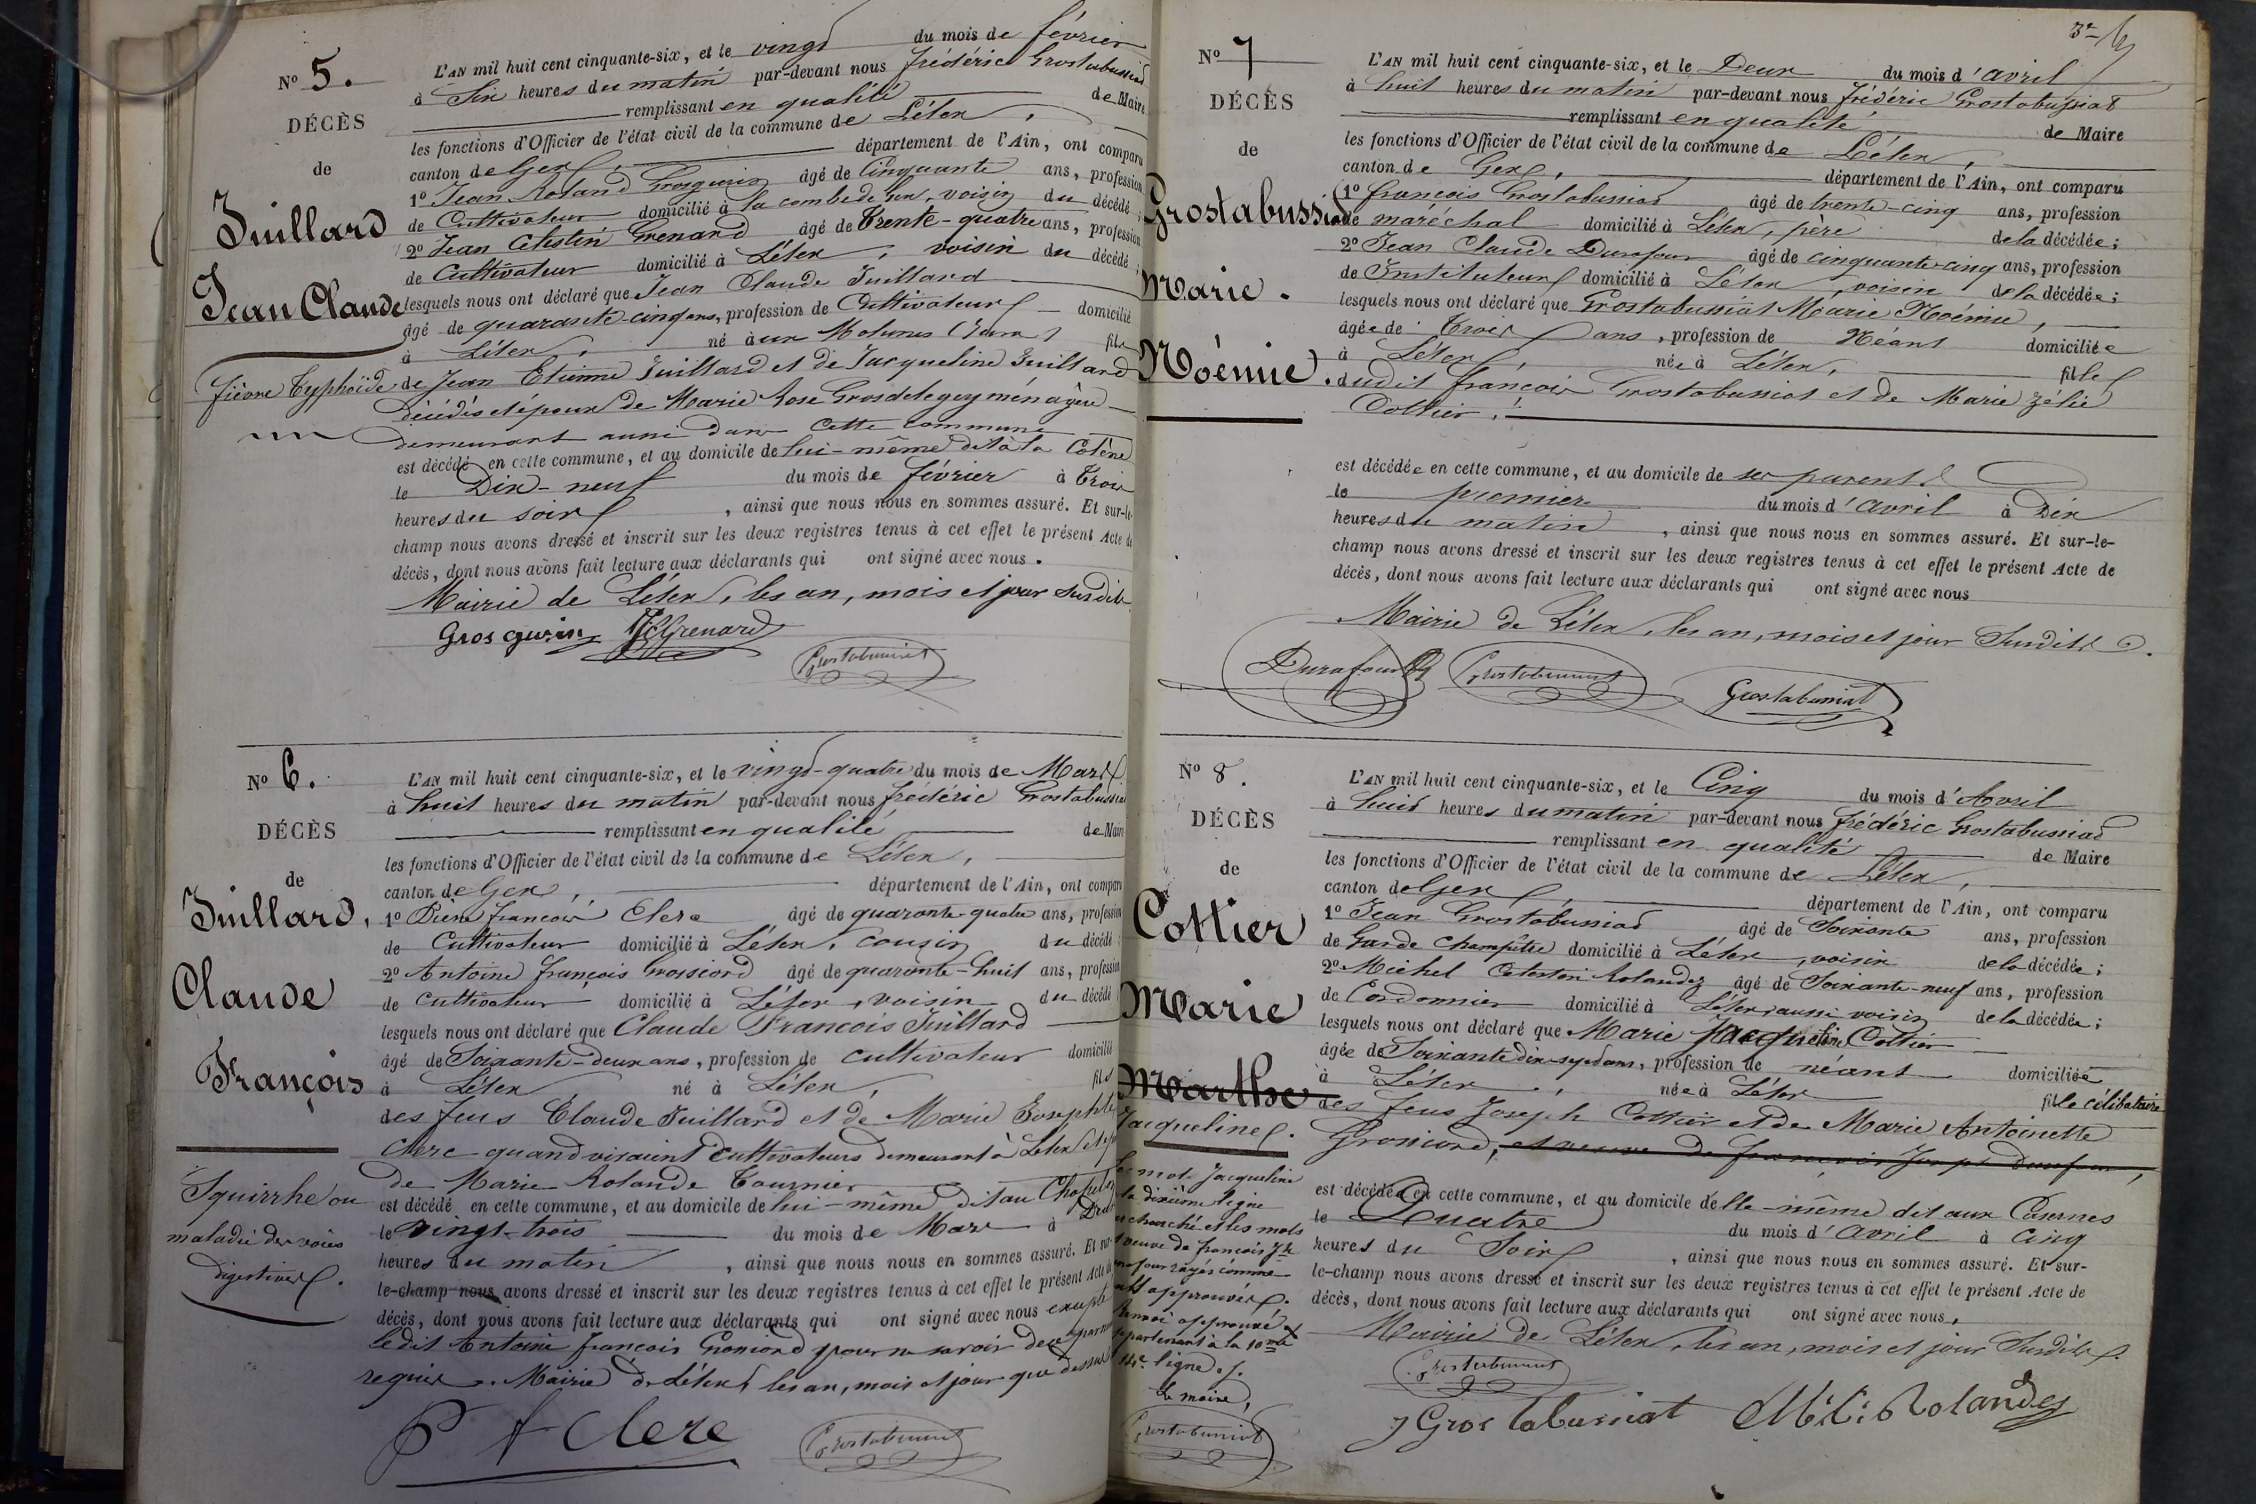 N° 5.
DÉCÈS
de
Juillard
Jean Claude
fièvre Typhoïde
L'AN mil huit cent cinquante-six, et le vingt du mois de février
à Six heures du matin par-devant nous frédéric Grostabussiat
remplissant en qualité de Maire
les fonctions d'Officier de l'état civil de la commune de Lélex,
canton de Gex, département de l'Ain, ont comparu
1° Jean Roland Grosgurin âgé de Cinquante ans, profession
de Cultivateur domicilié à la combe de Gex, voisin du décédé;
2° Jean Célestin Grenard âgé de Trente-quatre ans, profession
de Cultivateur domicilié à Lélex, voisin du décédé;
lesquels nous ont déclaré que Jean Claude Juillard
âgé de quarante-cinq ans, profession de Cultivateur domicilié
à Lélex, né aux Molunes (Jura) fils
de Jean Etienne Juillard et de Jacqueline Juillard
décédés et époux de Marie Rose Grosdeleguy ménagère
demeurant aussi dans cette commune
est décédé en cette commune, et au domicile de lui-même dit à la
le Dix-neuf du mois de février à Trois
heures du soir, ainsi que nous nous en sommes assuré. Et sur-le-
champ nous avons dressé et inscrit sur les deux registres tenus à cet effet le présent Acte de
décès, dont nous avons fait lecture aux déclarants qui ont signé avec nous.
Mairie de Lélex, les an, mois et jour susdits
Gros gurin JCGrenard
Grostabussiat
N° 6.
DÉCÈS
de
Juillard,
Claude
François
Squirrhe ou
maladie des voies
digestives.
L'AN mil huit cent cinquante-six, et le vingt-quatre du mois de Mars
à huit heures du matin par-devant nous frédéric Grostabussiat
remplissant en qualité de Maire
les fonctions d'Officier de l'état civil de la commune de Lélex,
canton de Gex, département de l'Ain, ont comparu
1° Pierre françois Clerc âgé de quarante-quatre ans, profession
de Cultivateur domicilié à Lélex, cousin du décédé;
2° Antoine françois Grossiord âgé de quarante-huit ans, profession
de cultivateur domicilié à Lélex, voisin du décédé
lesquels nous ont déclaré que Claude François Juillard
âgé de Soixante-deux ans, profession de cultivateur domicilié
à Lélex né à Lélex, fils
des feus Claude Juillard et de Marie Josephte
Clerc quand vivaient Cultivateurs demeurant à Lélex
de Marie Rolande Tournier
est décédé en cette commune, et au domicile de lui-même dit au
le vingt-trois du mois de Mars à
heures du matin, ainsi que nous nous en sommes assuré. Et sur
le-champ nous avons dressé et inscrit sur les deux registres tenus à cet effet le présent Acte de
décès, dont nous avons fait lecture aux déclarants qui ont signé avec nous excepté
ledit Antoine françois Grossiord pour ne savoir de ce
requis. Mairie de Lélex, les an, mois et jour que dessus
P f Clerc
Grostabussiat
3e
N° 7
DÉCÈS
de
Grostabussiat
Marie.
Noémie.
L'AN mil huit cent cinquante-six, et le Deux du mois d'avril
à huit heures du matin par-devant nous frédéric Grostabussiat
remplissant en qualité de Maire
les fonctions d'Officier de l'état civil de la commune de Lélex,
canton de Gex, département de l'Ain, ont comparu
1° françois Grostabussiat âgé de trente-cinq ans, profession
de maréchal domicilié à Lélex, père de la décédée;
2° Jean Claude Durafour âgé de cinquante-cinq ans, profession
de Instituteur domicilié à Lélex, voisin de la décédée;
lesquels nous ont déclaré que Grostabussiat Marie Noémie,
âgée de Trois ans, profession de Néant domiciliée
à Lélex née à Lélex, fille
dudit françois Grostabussiat et de Marie zélie
Cottier,
est décédée en cette commune, et au domicile de ses parents
le premier du mois d'avril à Dix
heures du matin, ainsi que nous nous en sommes assuré. Et sur-le-
champ nous avons dressé et inscrit sur les deux registres tenus à cet effet le présent Acte de
décès, dont nous avons fait lecture aux déclarants qui ont signé avec nous
Mairie de Lélex, les an, mois et jour Susdits.
Durafour Grostabussiat Grostabussiat
N° 8.
DÉCÈS
de
Cottier
Marie
Marthe
Jacqueline.
Le mot Jacqueline
la dixième ligne
surchargé et les mots
et veuve de françois Jh
Durafour rayés comme
nuls approuvés.
Renvoi approuvé
appartenant à la 10me
14e ligne.
Le maire,
Grostabussiat
L'AN mil huit cent cinquante-six, et le Cinq du mois d'Avril
à huit heures du matin par-devant nous frédéric Grostabussiat
remplissant en qualité de Maire
les fonctions d'Officier de l'état civil de la commune de Lélex,
canton de Gex, département de l'Ain, ont comparu
1° Jean Grostabussiat âgé de Soixante ans, profession
de Garde champêtre domicilié à Lélex, voisin de la décédée;
2° Michel Célestin Rolandez âgé de Soixante-neuf ans, profession
de Cordonnier domicilié à Lélex, aussi voisin de la décédée;
lesquels nous ont déclaré que Marie Jacqueline Cottier
âgée de Soixante dix-sept ans, profession de néant domiciliée
à Lélex, née à Lélex fille célibataire
des feus Joseph Cottier et de Marie Antoinette
Grossiord, et veuve de françois Joseph Durafour,
est décédée en cette commune, et au domicile d'elle-même dit aux Casernes
le Quatre du mois d'avril à cinq
heures du Soir, ainsi que nous nous en sommes assuré. Et sur-
le-champ nous avons dressé et inscrit sur les deux registres tenus à cet effet le présent Acte de
décès, dont nous avons fait lecture aux déclarants qui ont signé avec nous,
Mairie de Lélex, les an, mois et jour Susdits.
Grostabussiat
J Gros tabussiat M. C. Rolandez